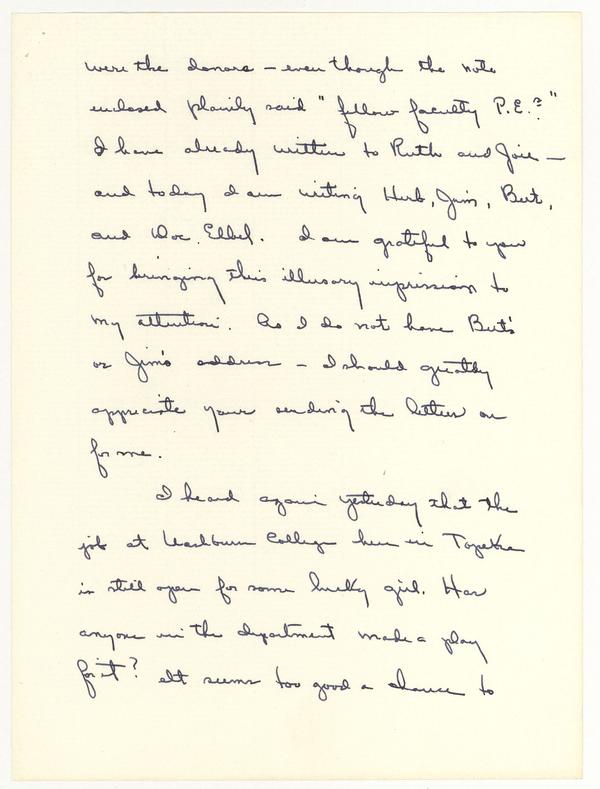 were the donors – even though the note
enclosed plainly said "fellow faculty P.E.?"
I have already written to Ruth and Joie —
and today I am writing Herb, Jim, Bert,
and Doc. Elbel. I am grateful to you
for bringing this illusory impression to
my attention. As I do not have Bert's
or Jim's address – I should greatly
appreciate your sending the letters on
for me.
I heard again yesterday that the
job at Washburn College here in Topeka
is still open for some lucky girl. Has
anyone in the department made a play
for it? It seems too good a chance to